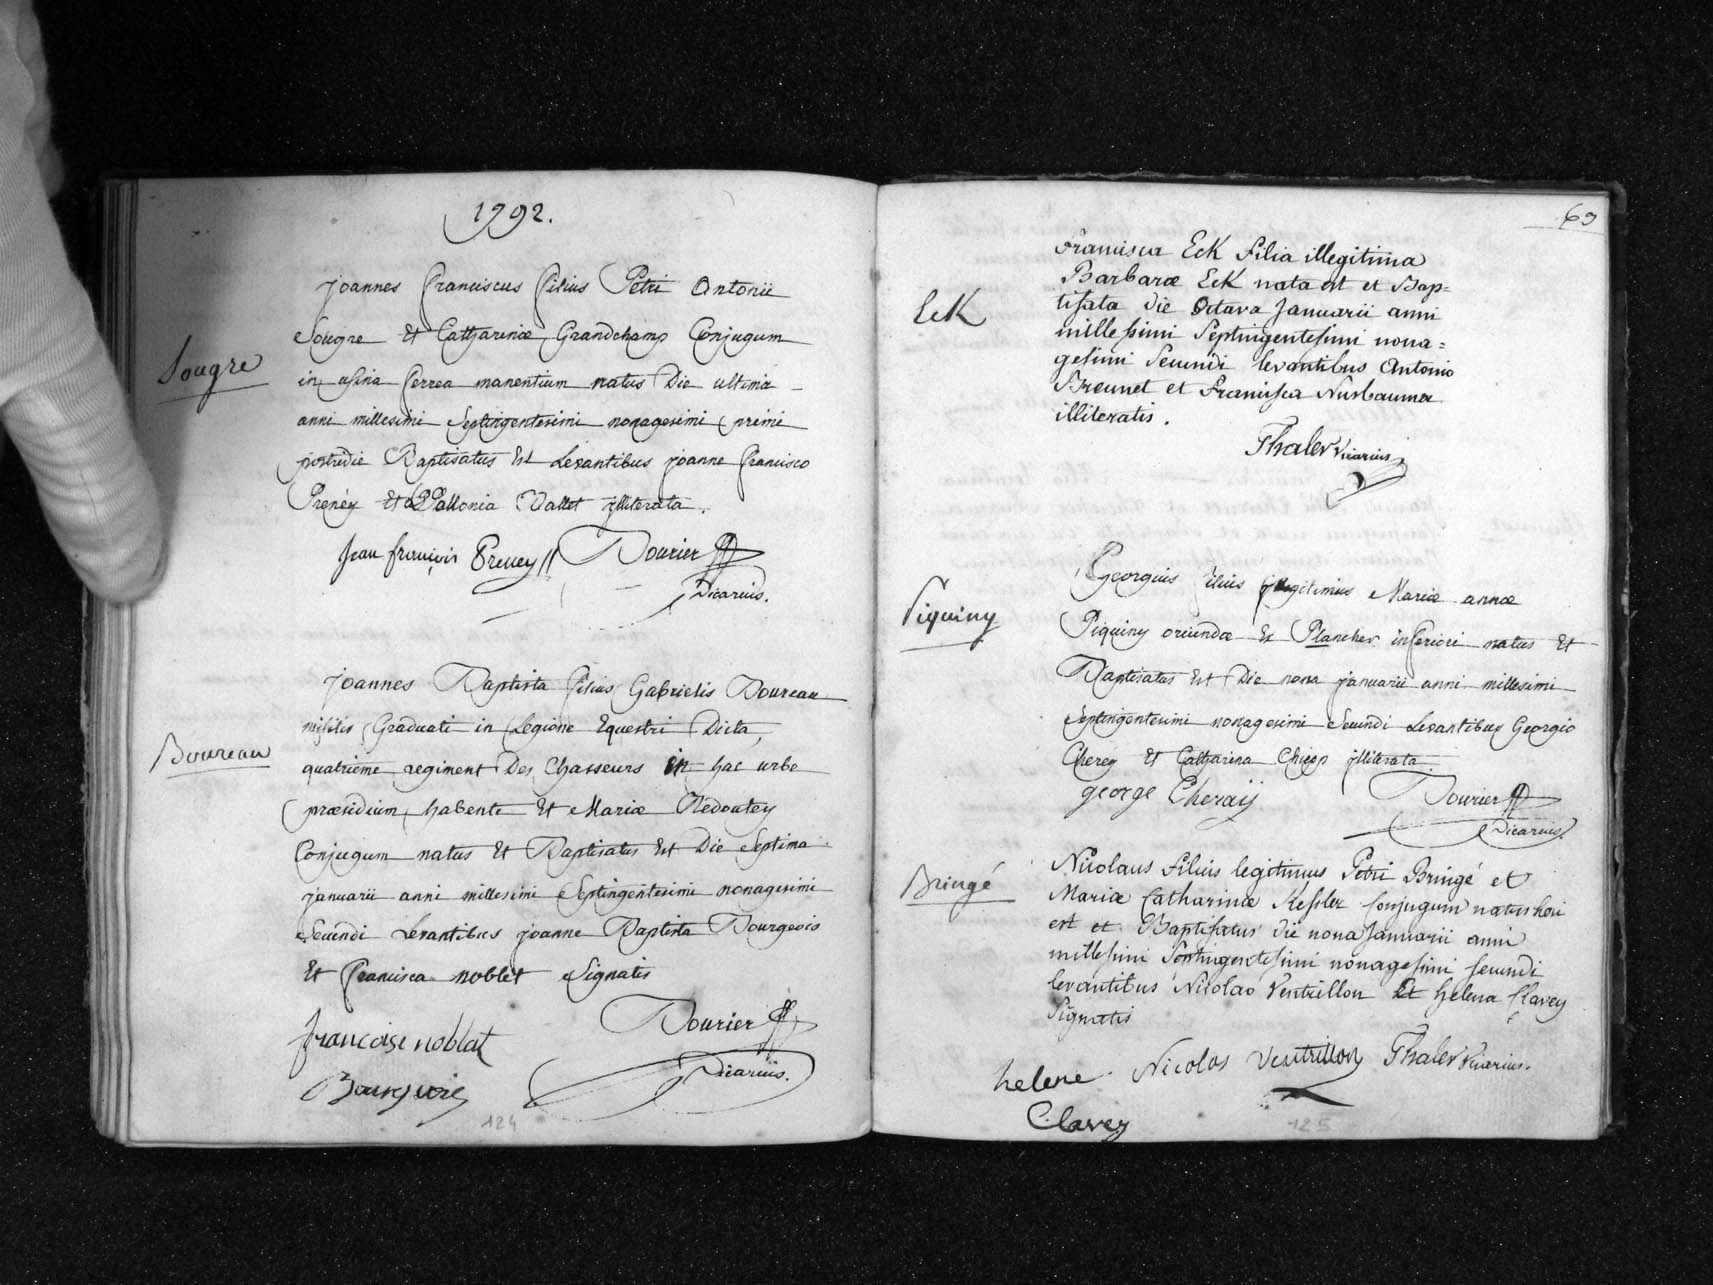 1792.
Sougre
Joannes Franciscus Filius Petri Antonii
Sougre Et Catharinæ Grandchamp Conjugum
in usina ferrea manentium natus Die ultima
anni millesimi Septingentesimi nonagesimi primi
postridie Baptisatus Est Levantibus joanne Francisco
Preney Et Apollonia Vallet jlliterata.
Jean françois Preney Dourier
Vicarius.
Boureau
joannes Baptista Filius Gabrielis Boureau
militis Graduati in Legione Equestri Dicta,
quatrieme regiment Des Chasseurs in hac urbe
præsidium habente Et Mariæ Redoutey
Conjugum natus Et Baptisatus Est Die Septima
januarii anni millesimi Septingentesimi nonagesimi
Secundi Levantibus joanne Baptista Bourgeois
Et Francisca noblet Signatis
francoise noblat Dourier
Bourgeois Vicarius.
124
69
Eck
Francisca Eck Filia illegitima
Barbaræ Eck nata est et Bap=
tisata die Octava Januarii anni
millesimi Septingentesimi nona=
gesimi Secundi levantibus Antonio
Breunet et Francisca Nusbaumer
illiteratis.
Thaler Vicarius
Piquiny
Georgius Filius illegitimus Mariæ annæ
Piquiny oriundæ Ex Plancher inferiori natus Et
Baptisatus Est Die nona januarii anni millesimi
Septingentesimi nonagesimi Secundi Levantibus Georgio
Cherey Et Catharina jlliterata.
george Cheraij Dourier
Vicarius.
Bringé
Nicolaus Filius legitimus Petri Bringé et
Mariæ Catharinæ Kessler Conjugum natus heri
est et Baptisatus die nona Januarii anni
millesimi Septingentesimi nonagesimi secundi
levantibus Nicolao Ventrillon Et helena Clavey
Signatis
helene Nicolas ventrillon Thaler Vicarius.
Clavey
125